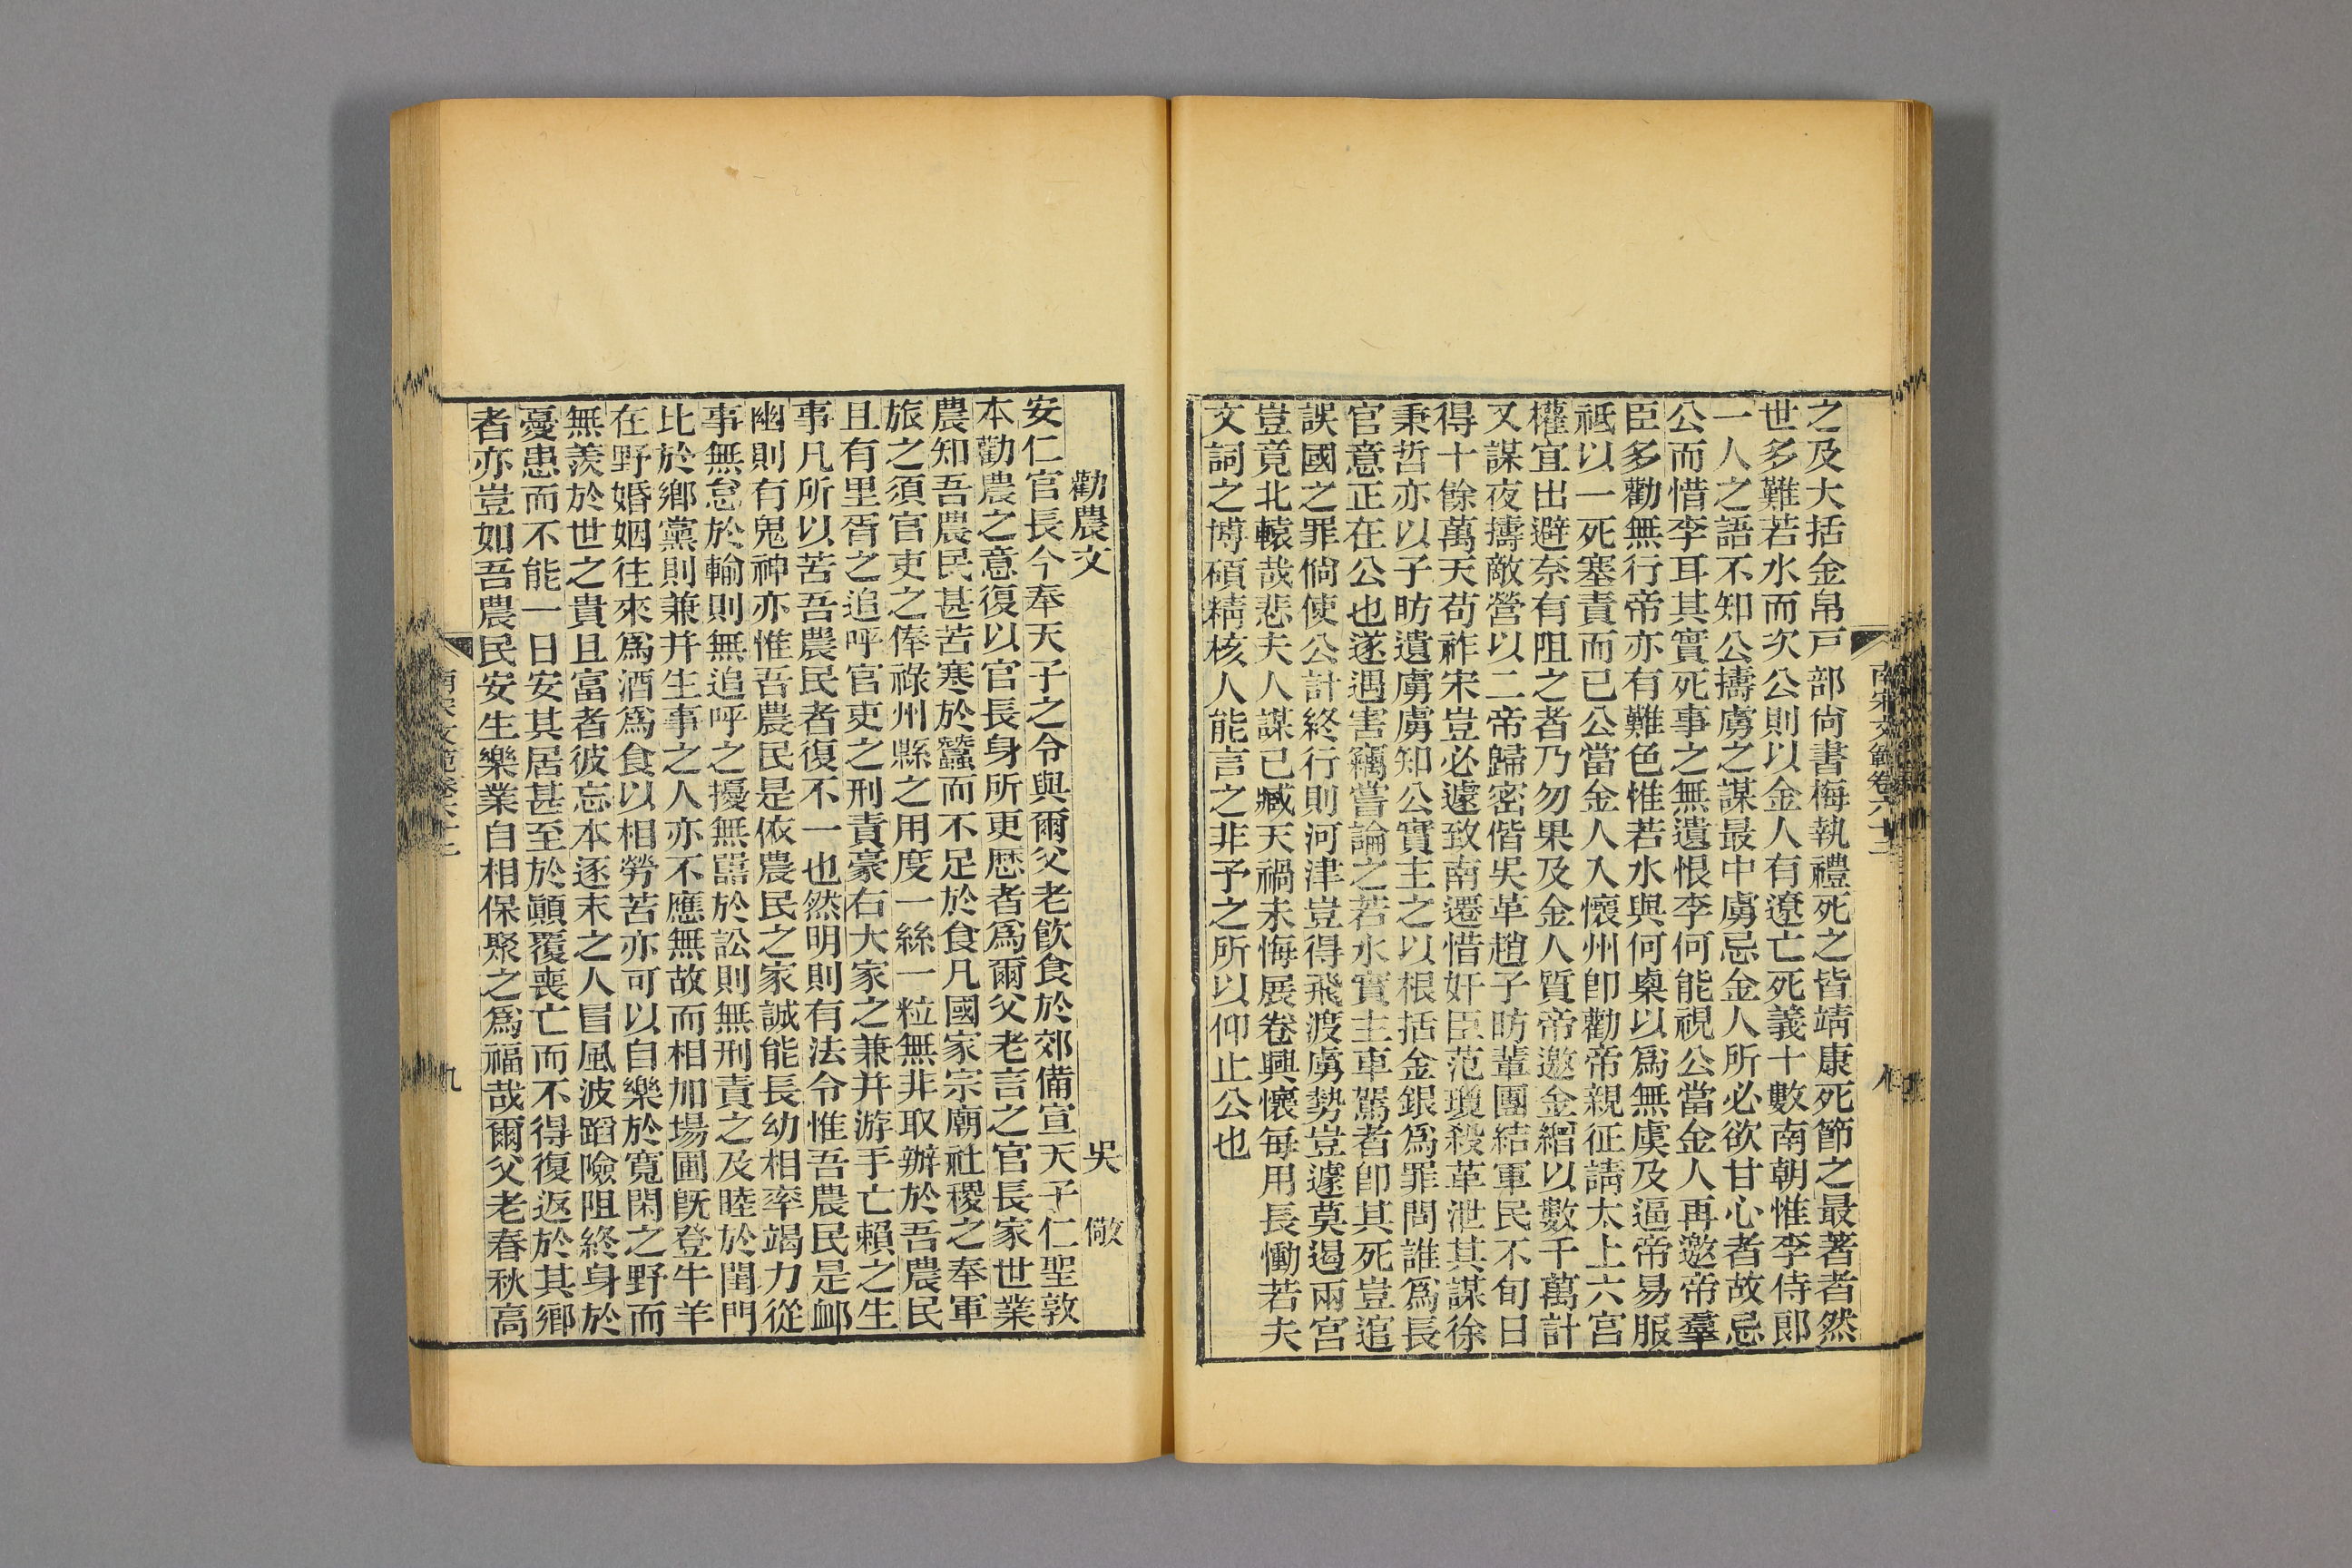 之及大括金帛戸部尙書梅執禮死之皆靖康死節之最著者然
世多難若水而次公則以金人有遼亡死義十數南朝惟李侍郞
一人之語不知公擣虜之謀最中虜忌金人所必欲甘心者故忌
公而惜李耳其實死事之無遺恨李何能視公當金人再邀帝羣
臣多勸無行帝亦有難色惟若水與何㮚以爲無虞及逼帝易服
祗以一死塞責而已公當金人入懷州卽勸帝親征請太上六宮
權宜出避奈有阻之者乃勿果及金人質帝邀金繒以數千萬計
又謀夜擣敵營以二帝歸密偕吳革趙子昉輩團結軍民不旬日
得十餘萬天苟祚宋豈必遽致南遷惜奸臣范瓊殺革泄其謀徐
秉哲亦以子昉遺虜虜知公實主之以根括金銀爲罪問誰爲長
官意正在公也遂遇害竊嘗論之若水實主車駕者卽其死豈逭
誤國之罪倘使公計終行則河津豈得飛渡虜勢豈遽莫遏兩宮
豈竟北轅哉悲夫人謀已臧天禍未悔展卷興懷每用長慟若夫
文詞之博碩精核人能言之非予之所以仰止公也
南宋文範卷六十二
八
勸農文
吳儆
安仁官長今奉天子之令與爾父老飮食於郊備宣天子仁聖敦
本勸農之意復以官長身所更歷者爲爾父老言之官長家世業
農知吾農民甚苦寒於蠶而不足於食凡國家宗廟社稷之奉軍
旅之須官吏之俸祿州縣之用度一絲一粒無非取辦於吾農民
且有里胥之追呼官吏之刑責豪右大家之兼并游手亡賴之生
事凡所以苦吾農民者復不一也然明則有法令惟吾農民是䘏
幽則有鬼神亦惟吾農民是依農民之家誠能長幼相率竭力從
事無怠於輸則無追呼之擾無嚚於訟則無刑責之及睦於閨門
比於鄕黨則兼并生事之人亦不應無故而相加場圃旣登牛羊
在野婚姻往來爲酒爲食以相勞苦亦可以自樂於寬閑之野而
無羨於世之貴且富者彼忘本逐末之人冒風波蹈險阻終身於
憂患而不能一日安其居甚至於顚覆喪亡而不得復返於其鄕
者亦豈如吾農民安生樂業自相保聚之爲福哉爾父老春秋高
南宋文範卷六十二
九